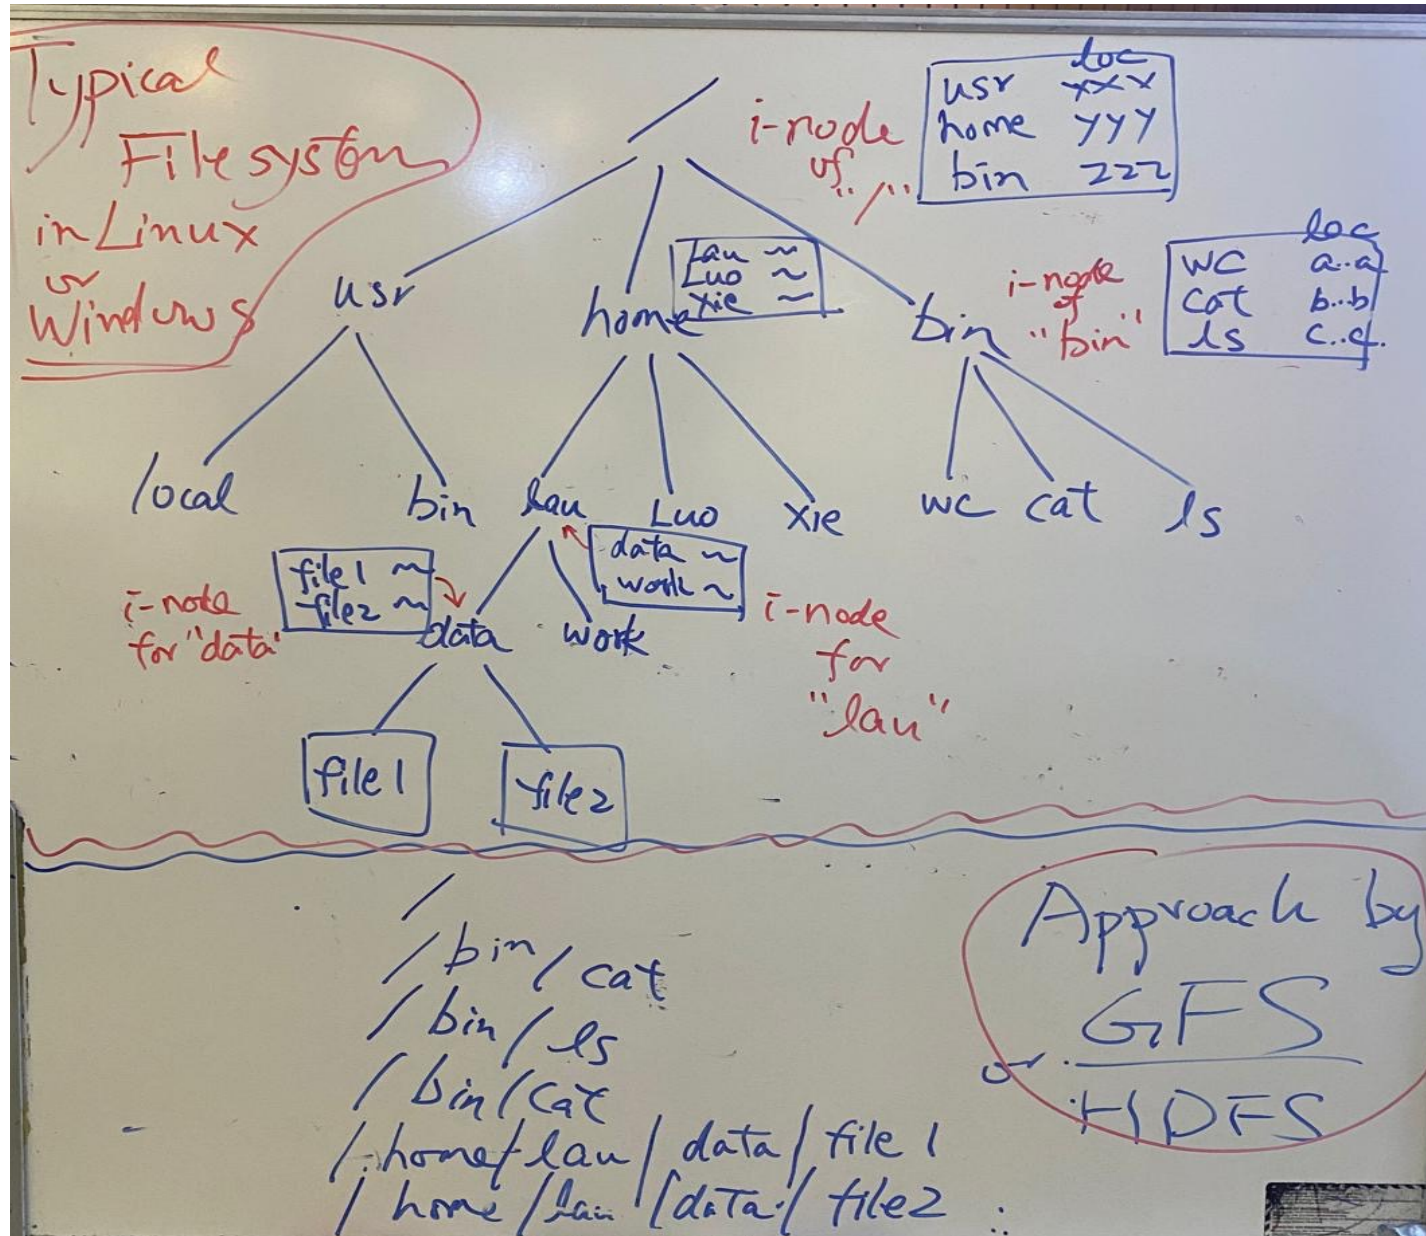 Typical
Filesystem
in Linux
or
Windows
/
i-node
of
"/"
loc
usr xxx
home yyy
bin zzz
usr
home
Lau ~
Luo ~
Xie ~
bin
i-node
of
"bin"
loc
wc a..a
cat b..b
ls c..c.
local
bin
lau
Luo
xie
wc
cat
ls
i-node
for "data"
file1 ~
file2 ~
data ~
work ~
i-node
for
"lau"
data
work
file1
file2
/
/bin/cat
/bin/ls
/bin/cat
/home/lau/data/file1
/home/lau/data/file2
:
Approach by
GFS
or
HDFS